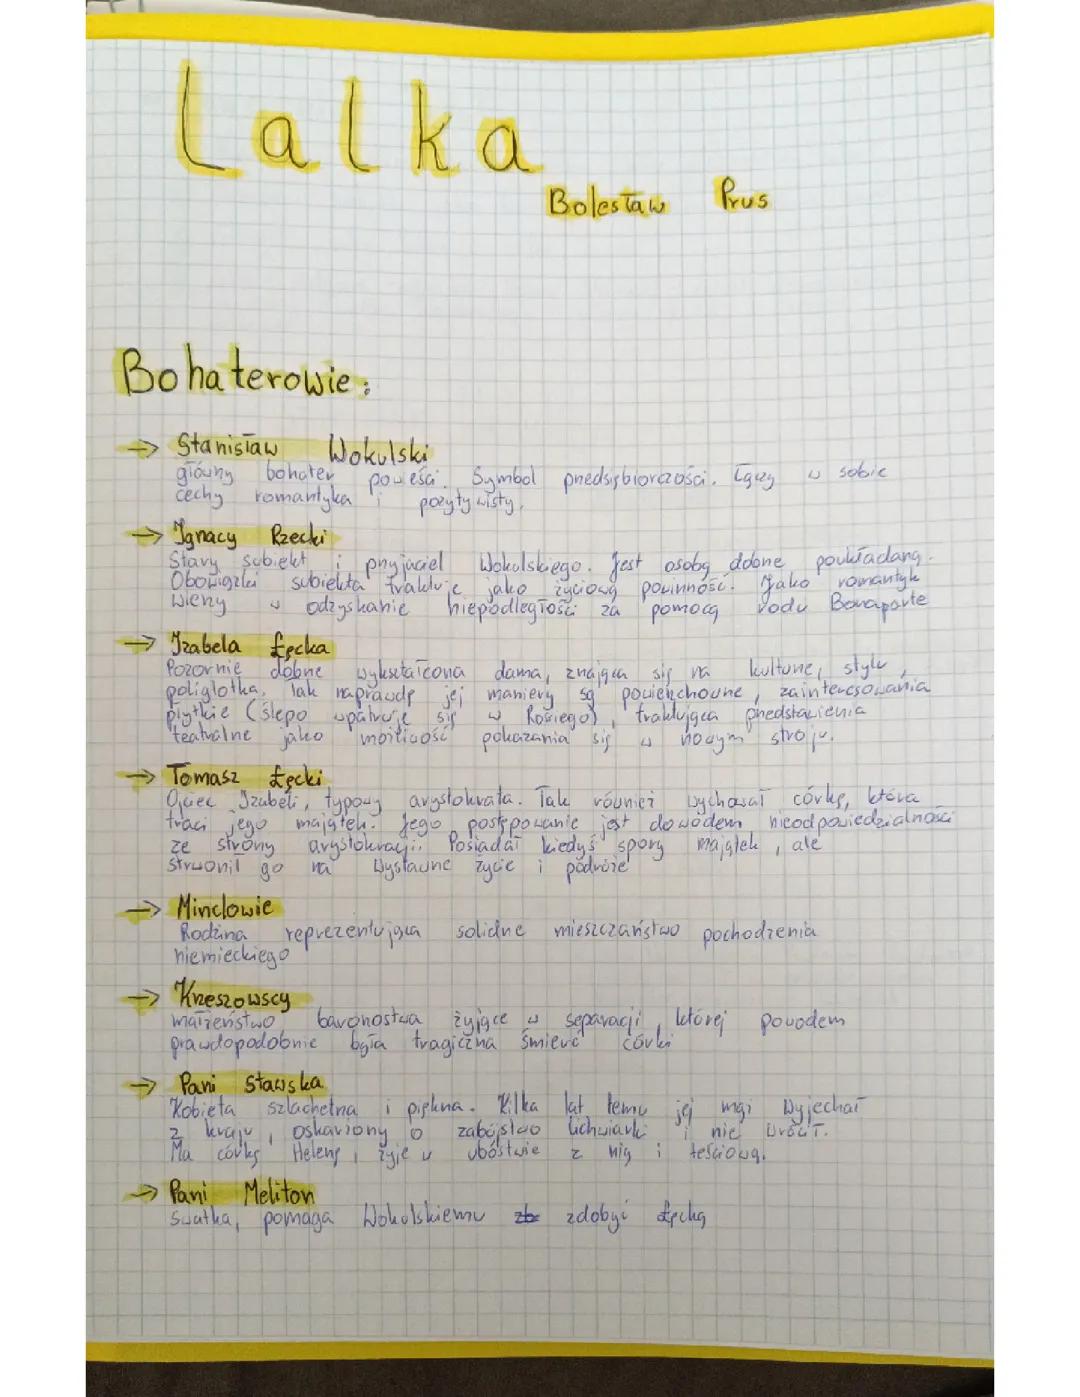 Lalka
Bolesław Prus
Bohaterowie:
→ Stanisław Wokulski
główny bohater powieści. Symbol przedsiębiorczości. Łączy w sobie
cechy romantyka i pozytywisty.
→ Ignacy Rzecki
Stary subiekt i przyjaciel Wokulskiego. Jest osobą dobrze poukładaną.
Obowiązki subiekta traktuje jako życiową powinność. Jako romantyk
wierzy w odzyskanie niepodległości za pomocą rodu Bonaparte
→ Izabela Łęcka
Pozornie dobrze wykształcona dama, znająca się na kulturze, stylu,
poliglotka. Tak naprawdę jej maniery są powierzchowne, zainteresowania
płytkie (ślepo wpatruje się w Rosiego), traktująca przedstawienia
teatralne jako możliwość pokazania się w nowym stroju.
→ Tomasz Łęcki
Ojciec Izabeli, typowy arystokrata. Tak również wychował córkę, która
traci jego majątek. Jego postępowanie jest dowodem nieodpowiedzialności
ze strony arystokracji. Posiadał kiedyś spory majątek, ale
strwonił go na wystawne życie i podróże
→ Minclowie
Rodzina reprezentująca solidne mieszczaństwo pochodzenia
niemieckiego
→ Krzeszowscy
małżeństwo baronostwa żyjące w separacji, której powodem
prawdopodobnie była tragiczna śmierć córki
→ Pani Stawska
Kobieta szlachetna i piękna. Kilka lat temu jej mąż wyjechał
z kraju, oskarżony o zabójstwo lichwiarki i nie wrócił.
Ma córkę Helenę, żyje w ubóstwie z nią i teściową.
→ Pani Meliton
swatka, pomaga Wokulskiemu zdobyć Łęcką